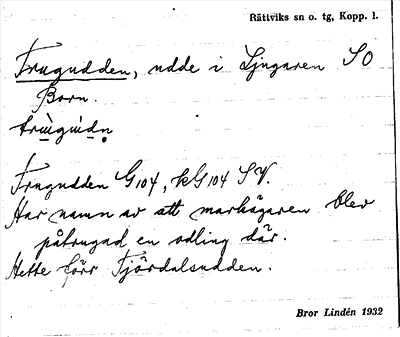 Rättviks sn o. tg, Kopp. l.
Frugudden, udde i Ljugaren SO
Born.
Frugudden G104, kG104 SV.
Har namn av att markägaren blev
påtrugad en odling där.
Hette förr Tjärdalsudden.
Bror Lindén 1932